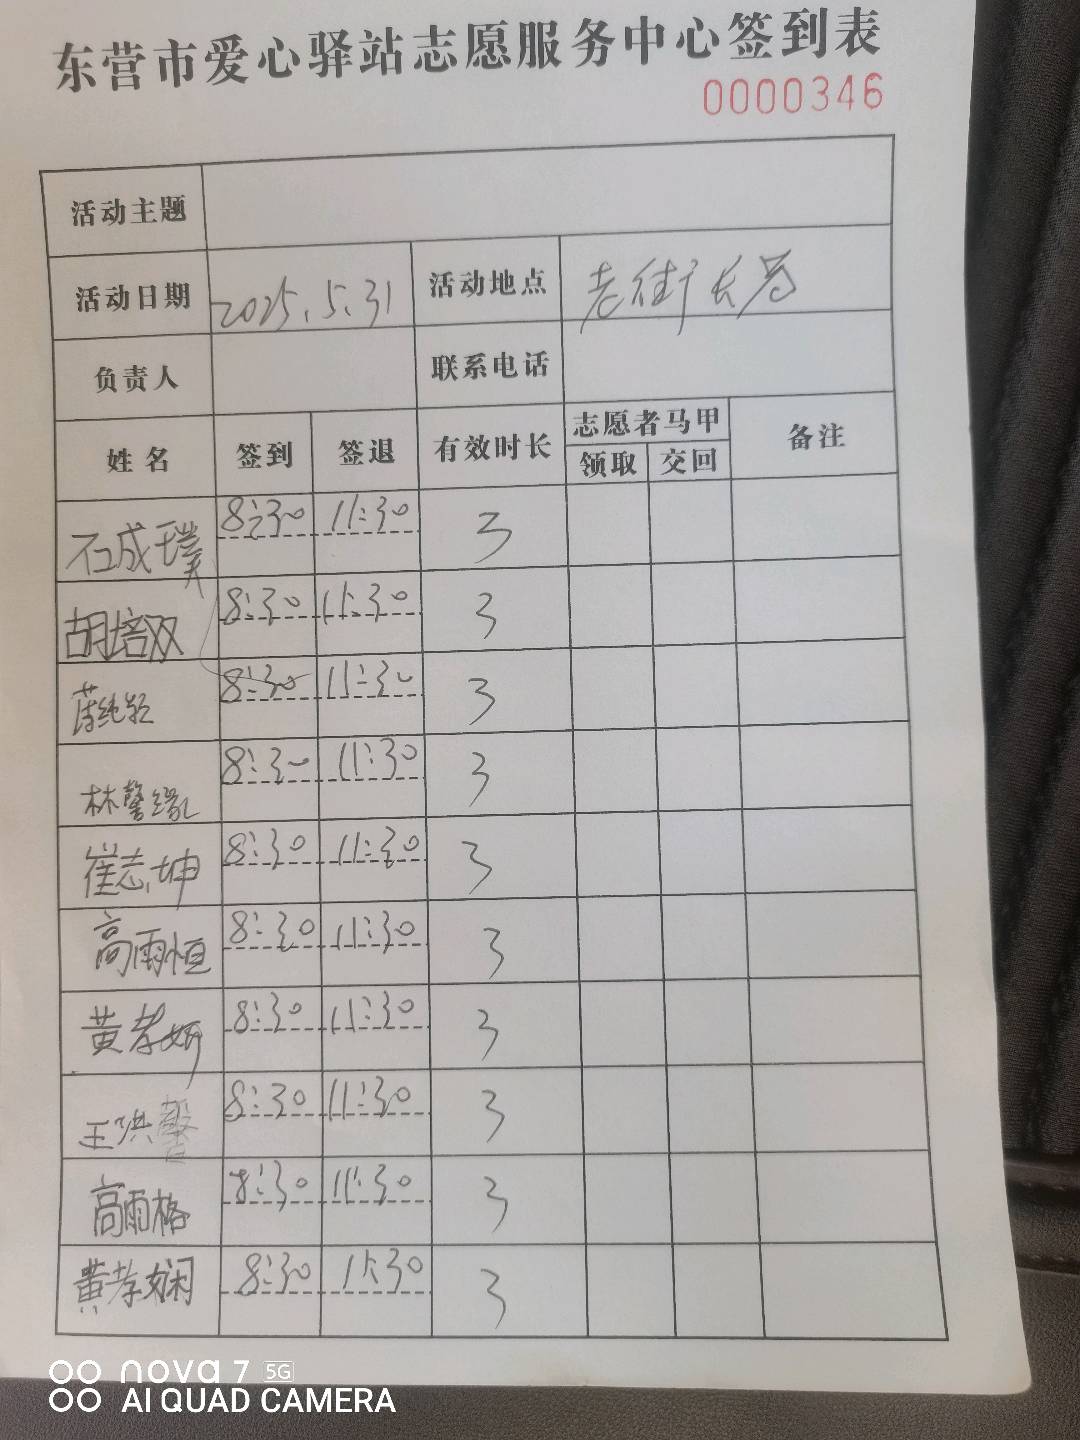 东营市爱心驿站志愿服务中心签到表
0000346
活动主题
活动日期 2025.5.31 活动地点 老街长
负责人 联系电话
姓名 签到 签退 有效时长 志愿者马甲 备注
领取 交回
石成璞 8:30 11:30 3
胡培双 8:30 11:30 3
8:30 11:30 3
林馨缘 8:30 11:30 3
崔志坤 8:30 11:30 3
高雨恒 8:30 11:30 3
黄孝妍 8:30 11:30 3
王洪馨 8:30 11:30 3
高雨格 8:30 11:30 3
黄孝娴 8:30 11:30 3
nova 7 5G
AI QUAD CAMERA